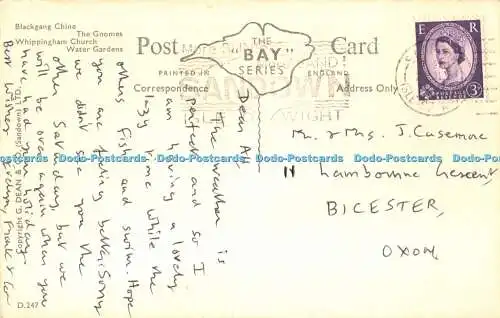 Blackgang Chine
The Gnomes
Whippingham Church
Water Gardens
Post Card
THE
"BAY"
SERIES
PRINTED IN
ENGLAND
Correspondence
Address Only
E R
POSTAGE REVENUE
3D
WIGHT
Dear All
The weather is
perfect and so I
am having a lovely
lazy time while the
others fish and swim. Hope
you are feeling better. Sorry
we didn't see you the
other Saturday but we
will be over again when you
have had your holiday.
Best wishes
Mr. & Mrs. J. Casemore
11 Lambourne Crescent,
BICESTER,
OXON.
COPYRIGHT W. J. NIGH & SONS
D.247
Dodo-Postcards Dodo-Postcards Dodo-Postcards Dodo-Postcards Dodo-Postcards Dodo-Postcards